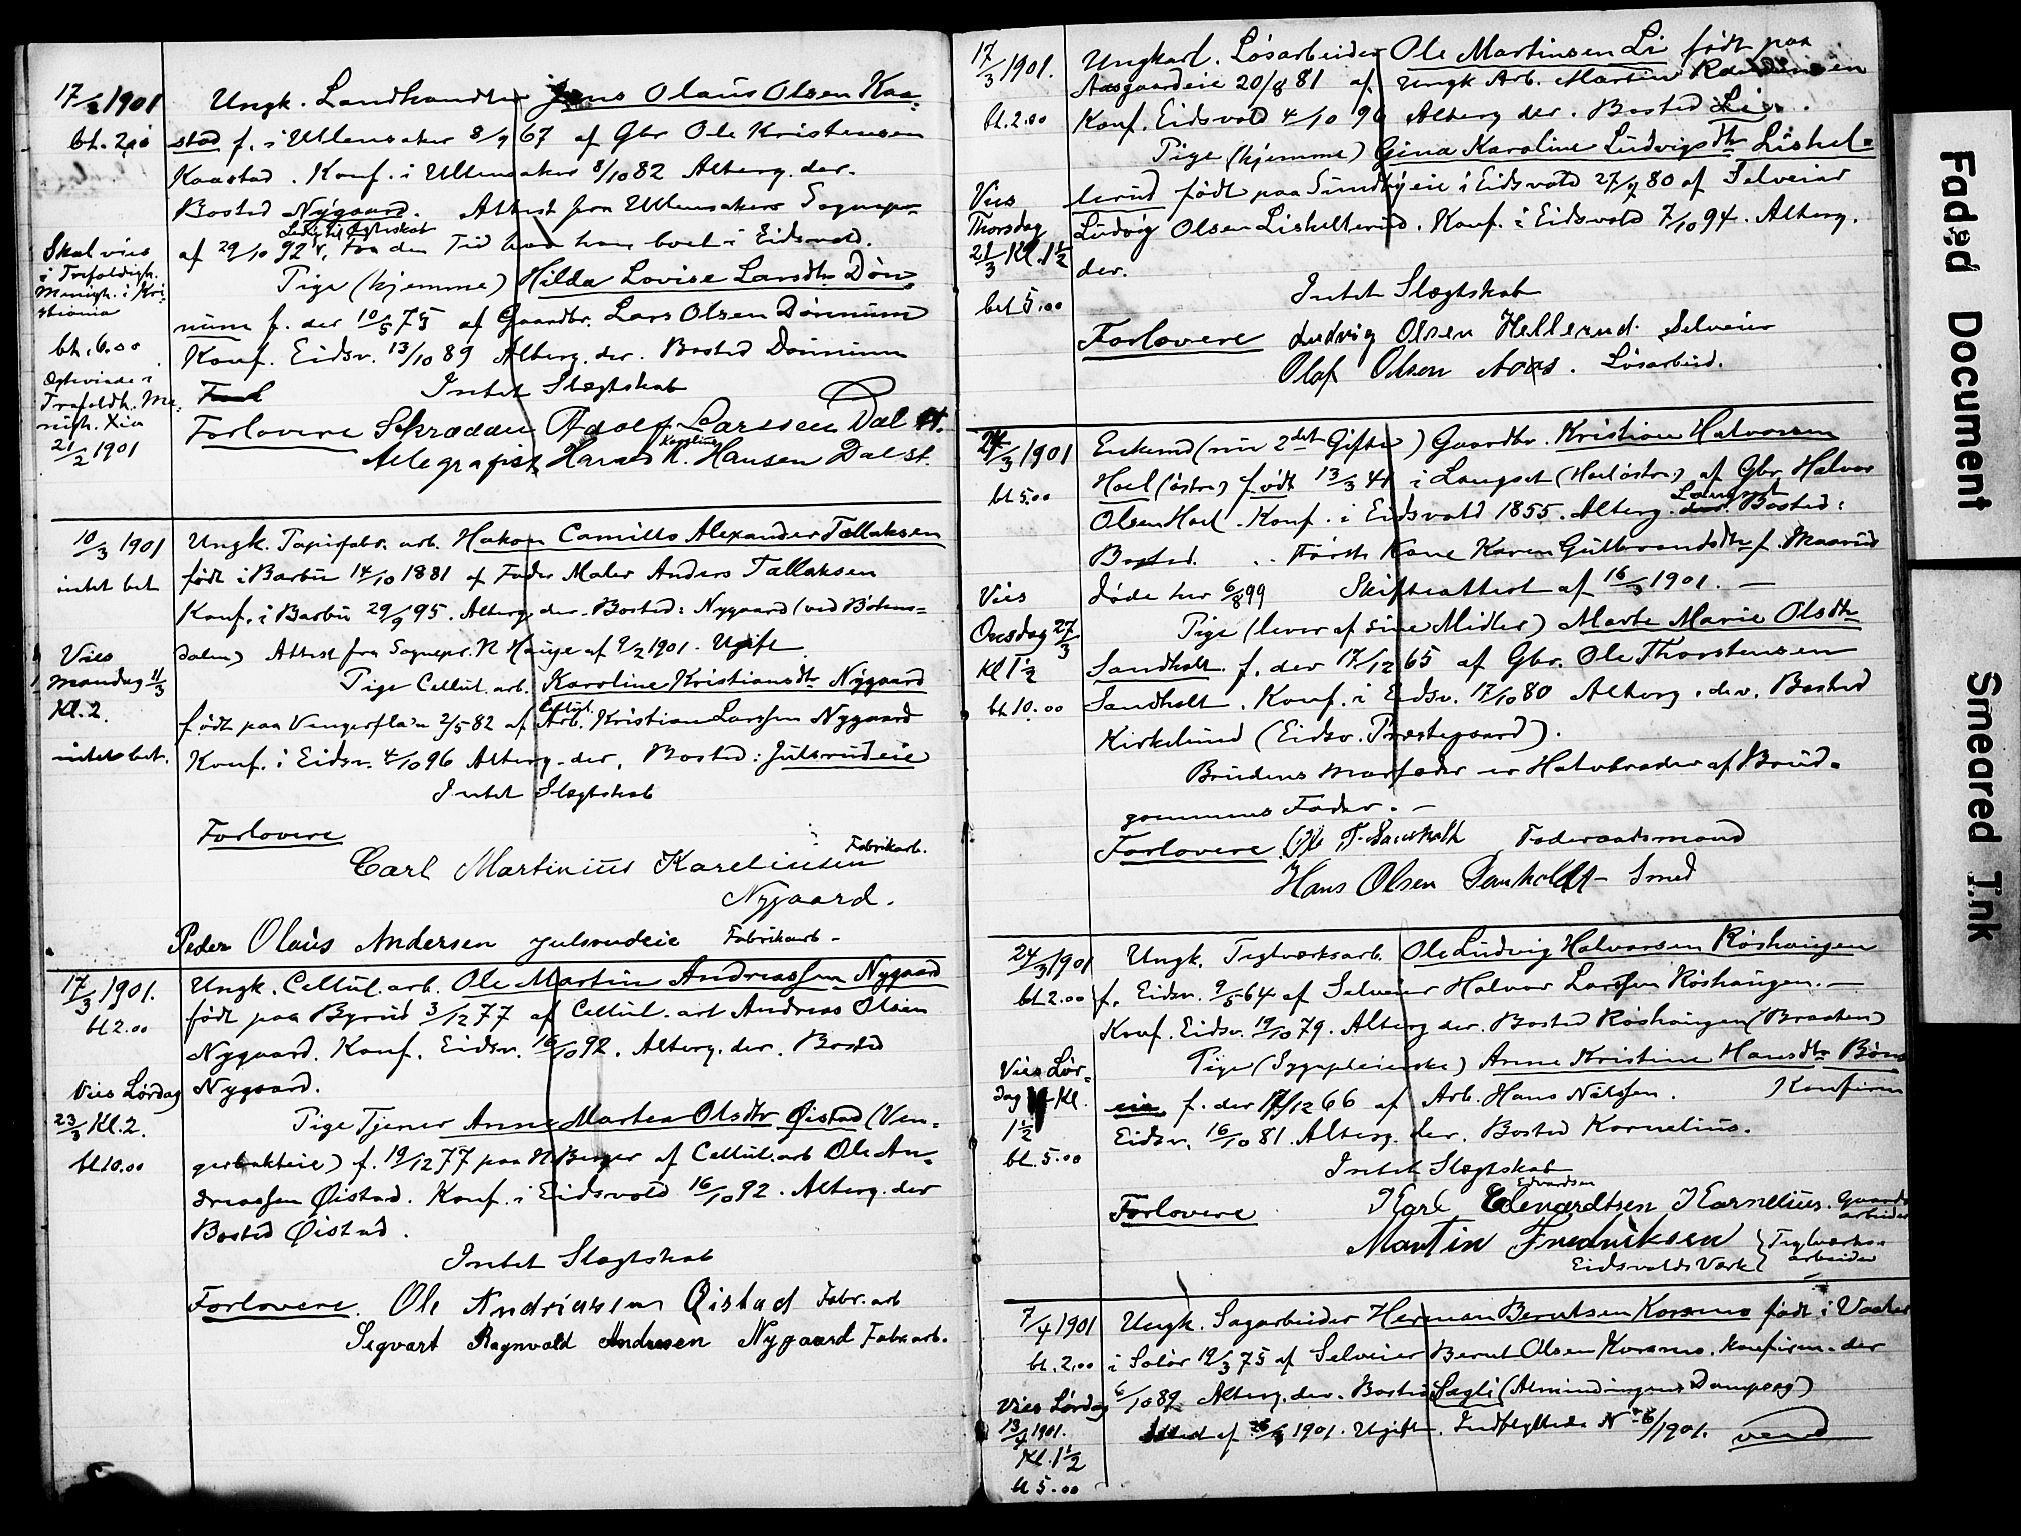 17/2 1901
bt. 2,00
Skal vies
i Trefoldigh.
Menigh. i Kri-
stiania
bt. 6.00
Ægteviede i
Trefoldh. Me-
nigh. Xia
21/2 1901
Ungk. Landhandler Jens Olaus Olsen Kaa-
stad f. i Ullensaker 8/9 67 af Gbr Ole Kristensen
Kaastad. Konf. i Ullensaker 8/10 82 Alterg. der.
Bosted Nygaard. Attest fra Ullensakers Sognepr.
Ledig til Ægteskab
af 29/10 92, fra den Tid har han boet i Eidsvold.
Pige (hjemme) Hilda Lovise Larsdtr Døn-
num f. der 10/5 75 af Gaardbr. Lars Olsen Dønnum
Konf. Eidsv. 13/10 89 Alterg. der. Bosted Dønnum
Forl
Intet Slægtskab
Forlovere Skrædder Adolf Larssen Dal st.
Karelius
Telegrafist Harald K. Hansen Dal st.
10/3 1901
intet bet
Vies
Mandag 11/3
Kl. 2.
intet bet.
Ungk. Papirfabr. arb. Hakon Camillo Alexander Tallaksen
født i Barbu 14/10 1881 af Fader Maler Anders Tallaksen
Konf. i Barbu 29/9 95. Alterg. der. Bosted: Nygaard (ved Bøhns-
dalen) Attest fra Sognepr. N Hauge af 9/2 1901. Ugift
Pige Cellul. arb. Karoline Kristiansdtr Nygaard
Cellul.
født paa Vengerfla'n 2/5 82 af Arb. Kristian Larssen Nygaard
Konf. i Eidsv. 4/10 96 Alterg. der, Bosted: Julsrudeie
Intet Slægtskab
Forlovere
Carl Martinius Kareliusen Fabrikarb.
Nygaard.
Peder Olaus Andersen Julsrudeie Fabrikarb-
17/3 1901.
bt 2.00
Vies Lørdag
23/3 Kl. 2.
bt 10.00
Ungk. Cellul. arb. Ole Martin Andreassen Nygaard
født paa Byrud 3/12 77 af Cellul. arb Andreas Olsen
Nygaard. Konf. Eidsv. 16/10 92. Alterg. der. Bosted
Nygaard.
Pige Tjener Anne Martea Olsdtr Øistad (Ven-
gerbakeie) f. 19/12 77 paa N Berger af Cellul. arb Ole An-
dreassen Øistad. Konf. i Eidsvold 16/10 92. Alterg. der
Bosted Øistad.
Intet Slægtskab
Forlovere. Ole Andriassen Øistad Fabr. arb
Segvart Ragnvald Andresen Nygaard Fabr arb.
17/3 1901.
bt. 2.00
Vies
Thorsdag
21/3 Kl. 1 1/2
bet 5.00
Ungkarl. Løsarbeider Ole Martinsen Li født paa
Aasgaardeie 20/8 81 af Ungk Arb. Martin
Konf. Eidsvold 4/10 96 Alterg der. Bosted Li.
Pige (hjemme) Gina Karoline Ludvigsdtr Liskel-
lerud født paa Sundbyeie i Eidsvold 27/4 80 af Selveier
Ludvig Olsen Liskellerud. Konf. i Eidsvold 7/10 94. Alterg.
der.
Intet Slægtskab
Forlovere Ludvig Olsen Hellerud. Selveier
Olaf Olsen Aas. Løsarbeid.
24/3 1901
bt 5.00
Vies
Onsdag 27/3
Kl 1 1/2
bt 10.00
Enkemd (nu 2det Gifte) Gaardbr. Kristian Halvorsen
Hoel (østre) født 13/3 41 i Langset (Hoel østre) af Gbr Halvor
Langset
Olsen Hoel. Konf. i Eidsvold 1855. Alterg. der. Bosted:
Bosted. .. Første Kone Karen Gulbrandsdtr f. Maarud
døde her 6/8 99 Skifteattest af 16/3 1901. —
Pige (lever af sine Midler) Marte Marie Olsdtr
Sandholt f. der 17/12 65 af Gbr. Ole Thorstensen
Sandholt. Konf. i Eidsv. 17/10 80 Alterg. der. Bosted
Kirkelund (Eidsv. Præstegaard).
Brudens Morfader er Halvbroder af Brud-
gommens Fader. —
Forlovere Ole T. Sandholt Føderaadsmand
Hans Olsen Sanholdt - Smed
24/3 1901
bt 2.00
Vies Lør-
dag Kl.
1 1/2
bt. 5.00
Ungk. Teglværksarb. Ole Ludvig Halvorsen Røshaugen
f. Eidsv. 9/5 64 af Selveier Halvor Larssen Røshaugen. —
Konf. Eidsv. 19/10 79. Alterg der. Bosted Røshaugen (Braaten)
Pige (Sygepleierske) Anne Kristine Hansdtr Bøns-
eie f. der 17/12 66 af Arb. Hans Nilssen. Konfirm
Eidsv. 16/10 81. Alterg. der. Bosted Kornelius.
Intet Slægtskab
Edvardsen
Forlovere Karl Edevardtsen Karnelius. Gaards
arbeider
Martin Fredriksen Teglværks-
Eidsvolds Værk arbeider
7/4 1901
bt. 2.00
Vies Lørdag
13/4 1901.
Kl. 1 1/2
bt 5.00
Ungk. Sagarbeider Herman Berntsen Korsmo født i Vaaler
i Solør 19/3 75 af Selveier Bernt Olsen Korsmo. Konfirm. der
6/10 89 Alterg. der. Bosted Sagli (Almindingens Dampsag)
Attest af 26/3 1901. Ugift. Indflyttede N 6/1901. vend
Faded Document
Smeared Ink